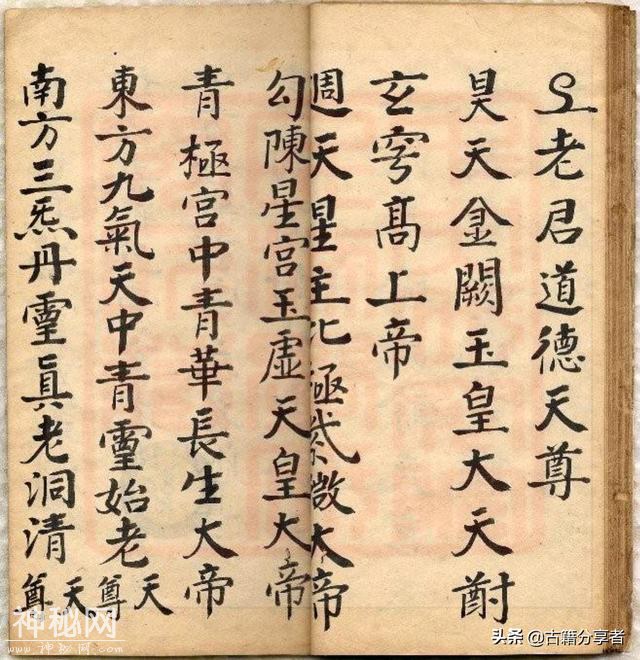 老君道德天尊
昊天金闕玉皇大天尊
玄穹髙上帝
週天星主北極紫微大帝
勾陳星宮玉虛天皇大帝
青極宮中青華長生大帝
東方九氣天中青靈始老天尊
南方三炁丹靈眞老洞清天尊
神秘网
www.神秘网.com
头条 @古籍分享者